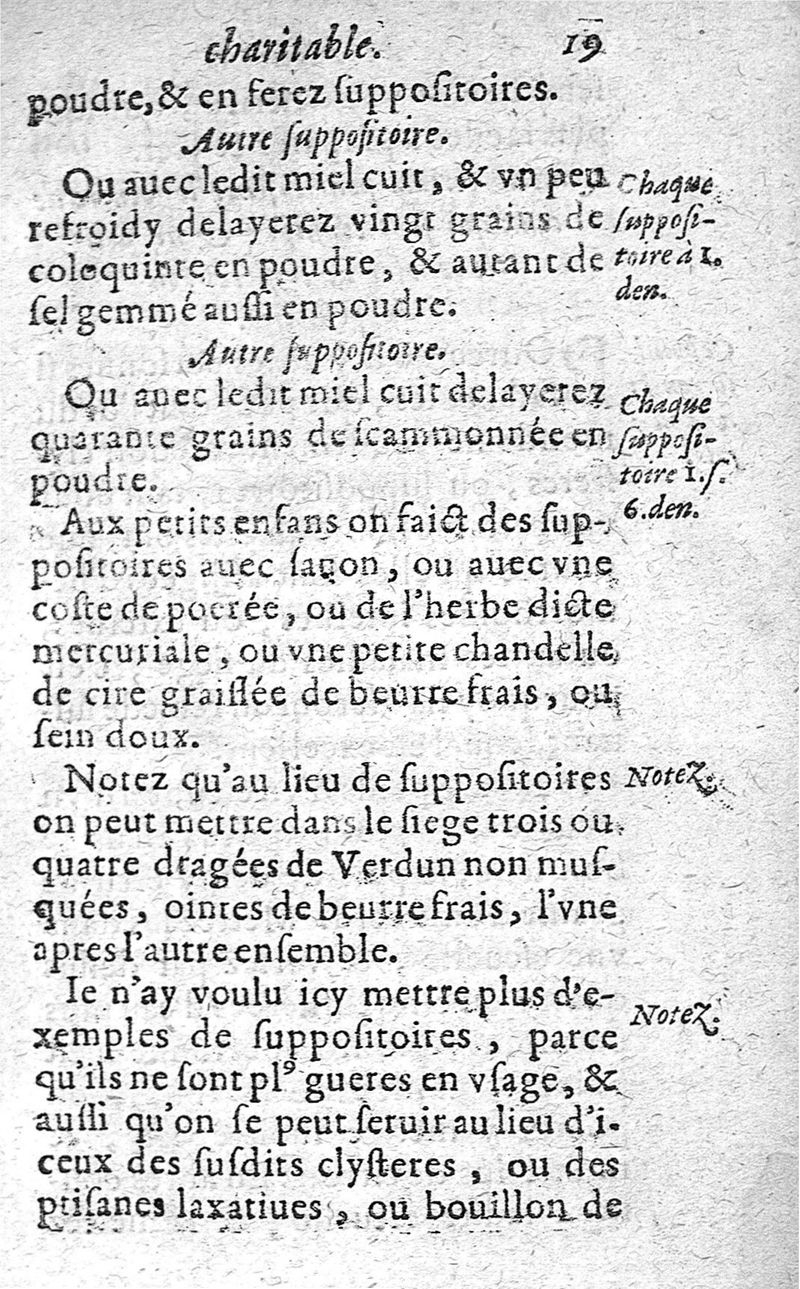 charitable. 19
poudre, & en ferez ſuppoſitoires.
Autre ſuppoſitoire.
Ou auec ledit miel cuit, & vn peu
refroidy delayerez vingt grains de
coloquinte en poudre, & autant de
ſel gemmé auſſi en poudre.
Chaque
ſuppoſi-
toire à 1.
den.
Autre ſuppoſitoire.
Ou auec ledit miel cuit delayerez
quarante grains de ſcammonnée en
poudre.
Chaque
ſuppoſi-
toire 1. ſ.
6. den.
Aux petits enfans on faict des ſup-
poſitoires auec ſauon, ou auec vne
coſte de poerée, ou de l'herbe dicte
mercuriale, ou vne petite chandelle
de cire graiſſée de beurre frais, ou
ſein doux.
Notez qu'au lieu de ſuppoſitoires
on peut mettre dans le ſiege trois ou
quatre dragées de Verdun non muſ-
quées, ointes de beurre frais, l'vne
apres l'autre enſemble.
Notez.
Ie n'ay voulu icy mettre plus d'e-
xemples de ſuppoſitoires, parce
qu'ils ne ſont plꝰ gueres en vſage, &
auſſi qu'on ſe peut ſeruir au lieu d'i-
ceux des ſuſdits clyſteres, ou des
ptiſanes laxatiues, ou bouillon de
Notez.